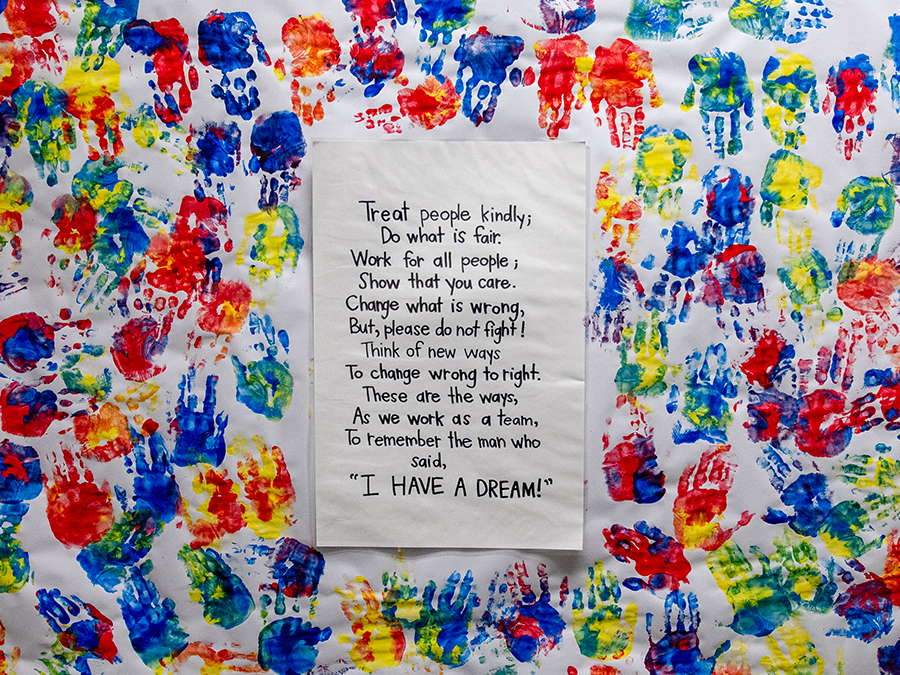 Treat people kindly;
Do what is fair.
Work for all people;
Show that you care.
Change what is wrong,
But, please do not fight!
Think of new ways
To change wrong to right.
These are the ways,
As we work as a team,
To remember the man who
said,
"I HAVE A DREAM!"